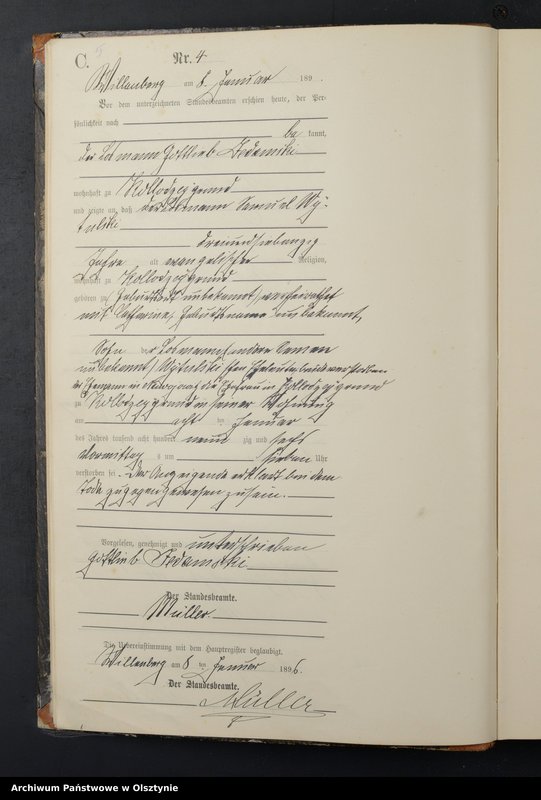 C.
Nr. 4
Willenberg am 8. Januar 189 .
Vor dem unterzeichneten Standesbeamten erschien heute, der Per-
sönlichkeit nach
be kannt,
der Losmann Gottlieb
wohnhaft zu Kollodzeygrund
und zeigte an, daß der Losmann Samuel
dreiundsiebenzig
Jahre alt, evangelischer Religion,
wohnhaft zu Kollodzeygrund
geboren zu Geburtsort unbekannt, verheirathet
mit Catharine, Geburtsname unbekannt,
Sohn der Losmann
unbekannt,
zu Kollodzeygrund in seiner Wohnung
am acht ten Januar
des Jahres tausend acht hundert neun zig und sechs
Vormittags um sieben Uhr
verstorben sei. Der Anzeigende erklärt bei dem
Tode zugegen gewesen zu sein.
Vorgelesen, genehmigt und unterschrieben
Gottlieb
Der Standesbeamte.
Müller
Die Uebereinstimmung mit dem Hauptregister beglaubigt.
Willenberg am 8 ten Januar 1896.
Der Standesbeamte.
Müller
Archiwum Państwowe w Olsztynie